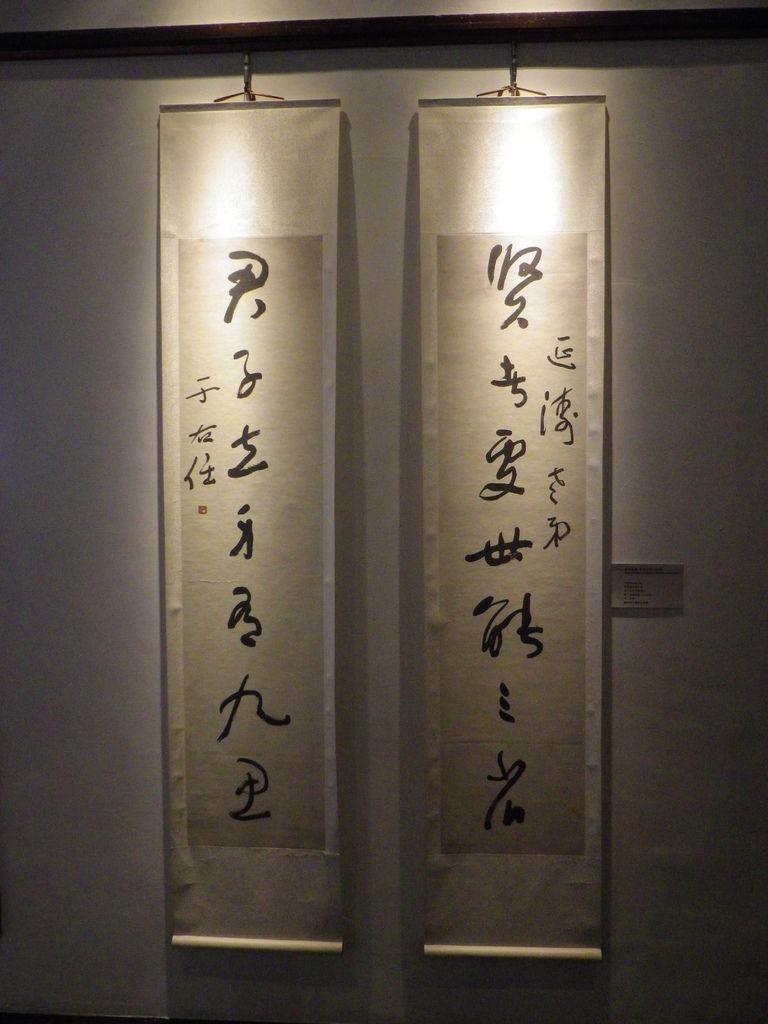 賢者處世能三省
延濤老弟
君子立身有九思
于右任